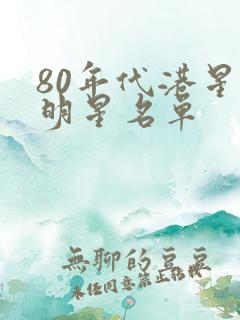 80年代港星
明星名单
無聊的豆豆
未经同意禁止转载